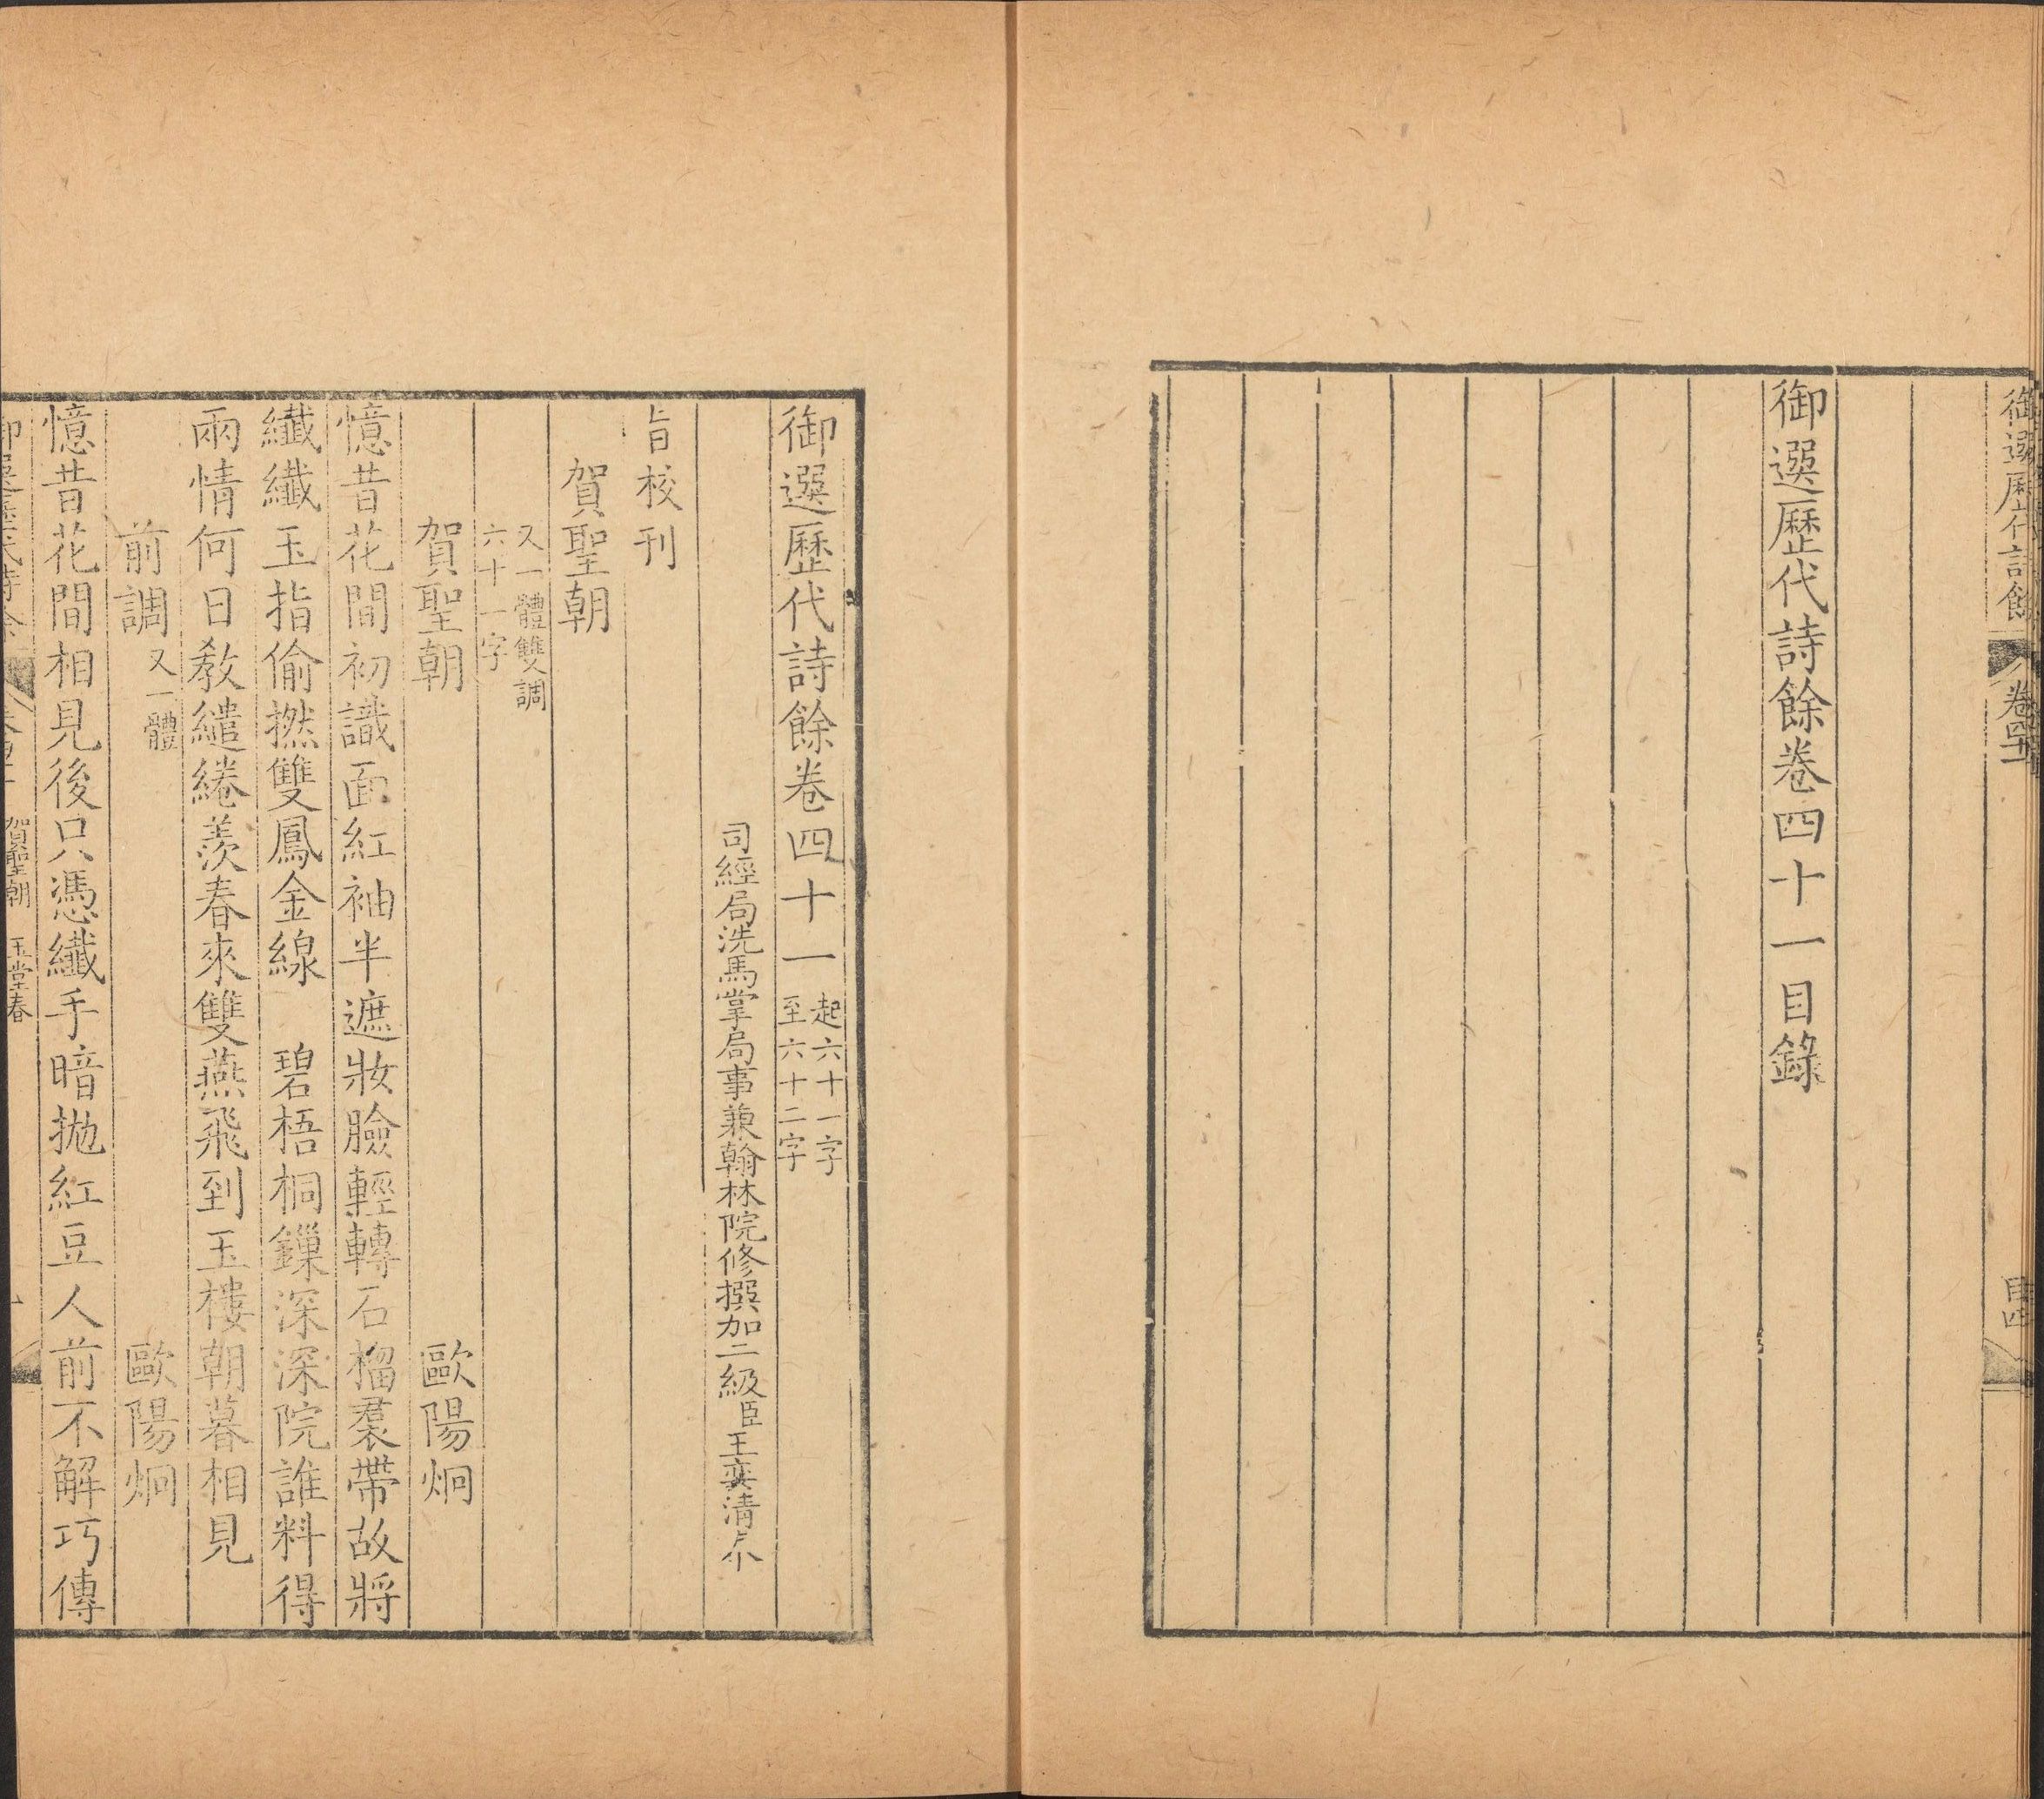 御選歷代詩餘 卷四十一 目四
御選歷代詩餘卷四十一目錄
御選歷代詩餘卷四十一 起六十一字
至六十二字
司經局洗馬掌局事兼翰林院修撰加二級臣王奕清奉
旨校刊
賀聖朝
又一體雙調
六十一字
賀聖朝 歐陽炯
憶昔花間初識面紅袖半遮妝臉輕轉石榴裙帶故將
纖纖玉指偷撚雙鳳金線 碧梧桐鏁深深院誰料得
兩情何日教繾綣羨春來雙燕飛到玉樓朝暮相見
前調 又一體 歐陽炯
憶昔花間相見後只憑纖手暗拋紅豆人前不解巧傳
賀聖朝 玉堂春 一